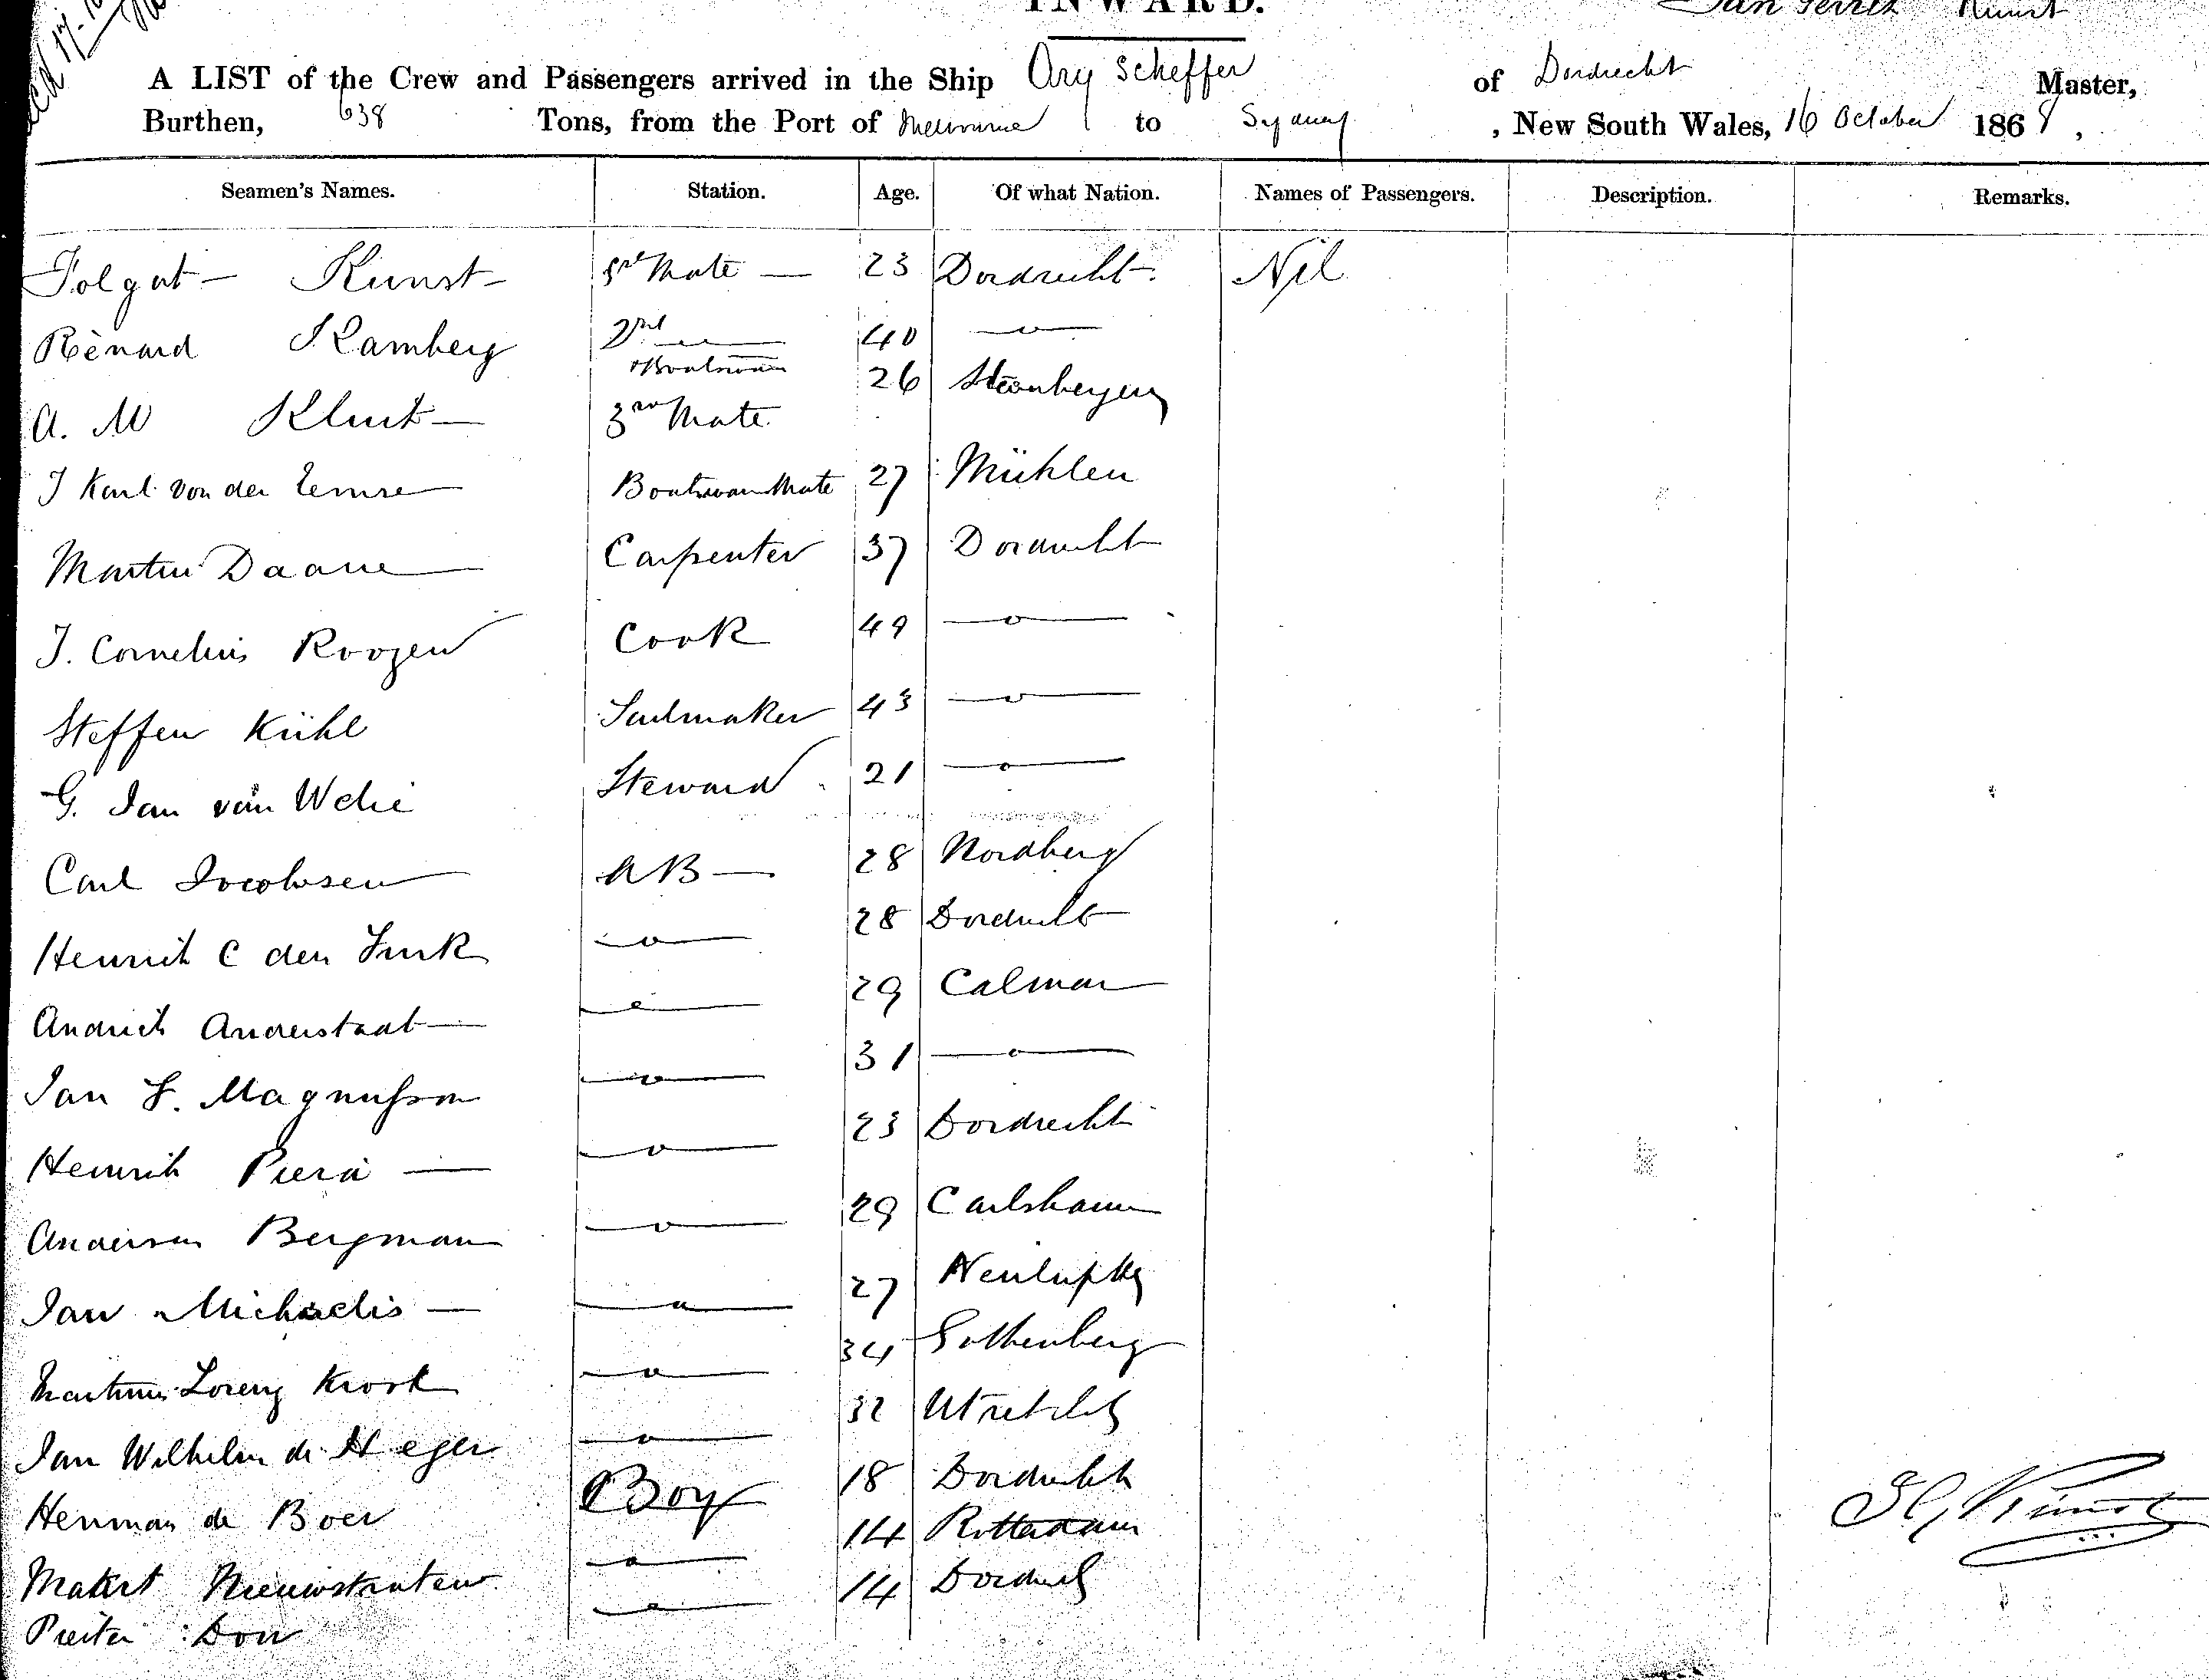 INWARD.
Jan Gerrit Kunst
A LIST of the Crew and Passengers arrived in the Ship Ary Scheffer of Dordrecht Master,
Burthen, 638 Tons, from the Port of Melbourne to Sydney , New South Wales, 16 October 1868 ,
Seamen's Names. Station. Age. Of what Nation. Names of Passengers. Description. Remarks.
Folgat Kunst 1st Mate 23 Dordrecht Nil
Renard Kamberg 2nd — 40 —
Boatswain
A. M Kluit 3rd Mate 26 Steenbergen
J Karl von der Boatswan Mate 27 Mühlen
Martin Daane Carpenter 37 Dordrecht
J. Cornelius Roozen Cook 49 — o —
Steffen Kühl Sailmaker 43 — o —
G. Jan van Welie Steward 21 — o —
Carl Jacobsen AB — 28 Nordberg
Henrich C den — o — 28 Dordrecht
Andrich Anderstaat — o — 29 Calmar
Jan F. Magnusson — o — 31 — o —
Heinrich Piera — — o — 23 Dordrecht
Anderson Bergman — o — 29 Carlshamn
Jan Michaelis — — o — 27
Martinus Lorenz Krook — o — 34 Gothenberg
Jan Wilhelm de Heger — o — 32 Utrecht
Herman de Boer Boy 18 Dordrecht
Maart Nieuwstraten — o — 14 Rotterdam
Pieter Don — o — 14 Dordrecht
J G Kunst